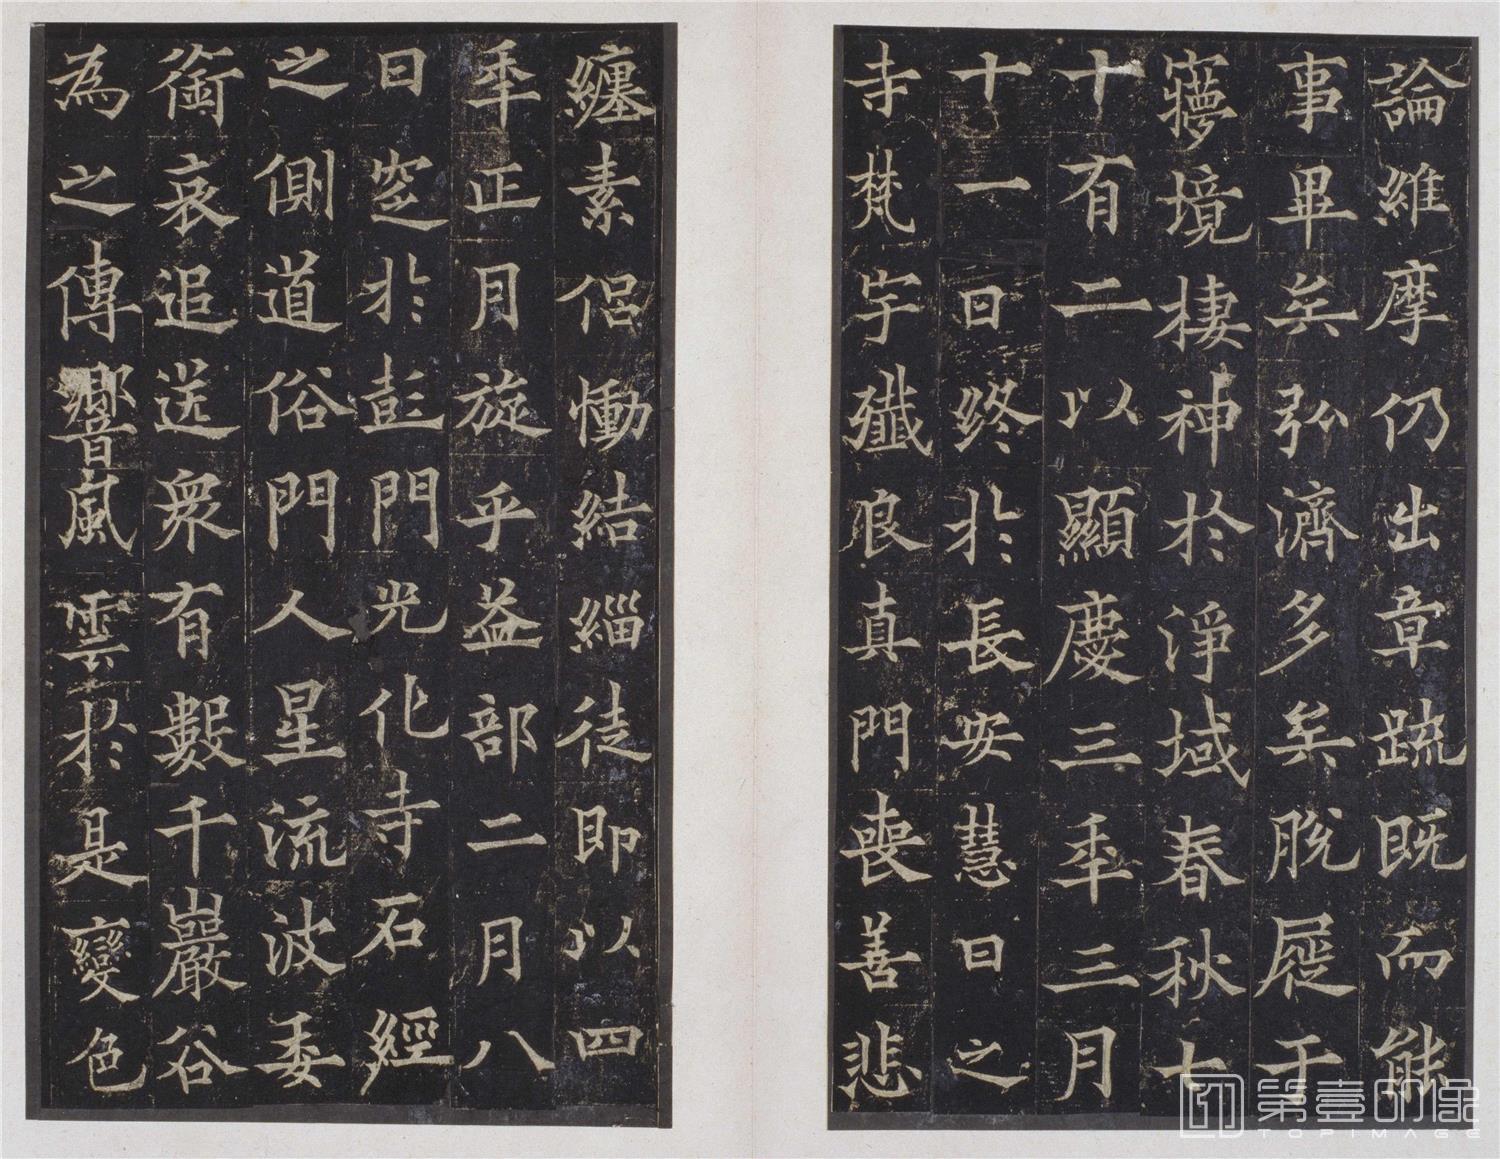 論維摩仍出章疏既而能
事畢矣弘濟多矣脫屣于
寢境棲神於淨域春秋七
十有二以顯慶三年三月
十一日終於長安慧日之
寺梵宇殲良真門喪善悲
纏素侶慟結緇徒即以四
年正月旋乎益部二月八
日窆於彭門光化寺石經
之側道俗門人星流波委
銜哀追送眾有數千巖谷
為之傳響風雲於是變色
第壹印像
TOPIMAGE